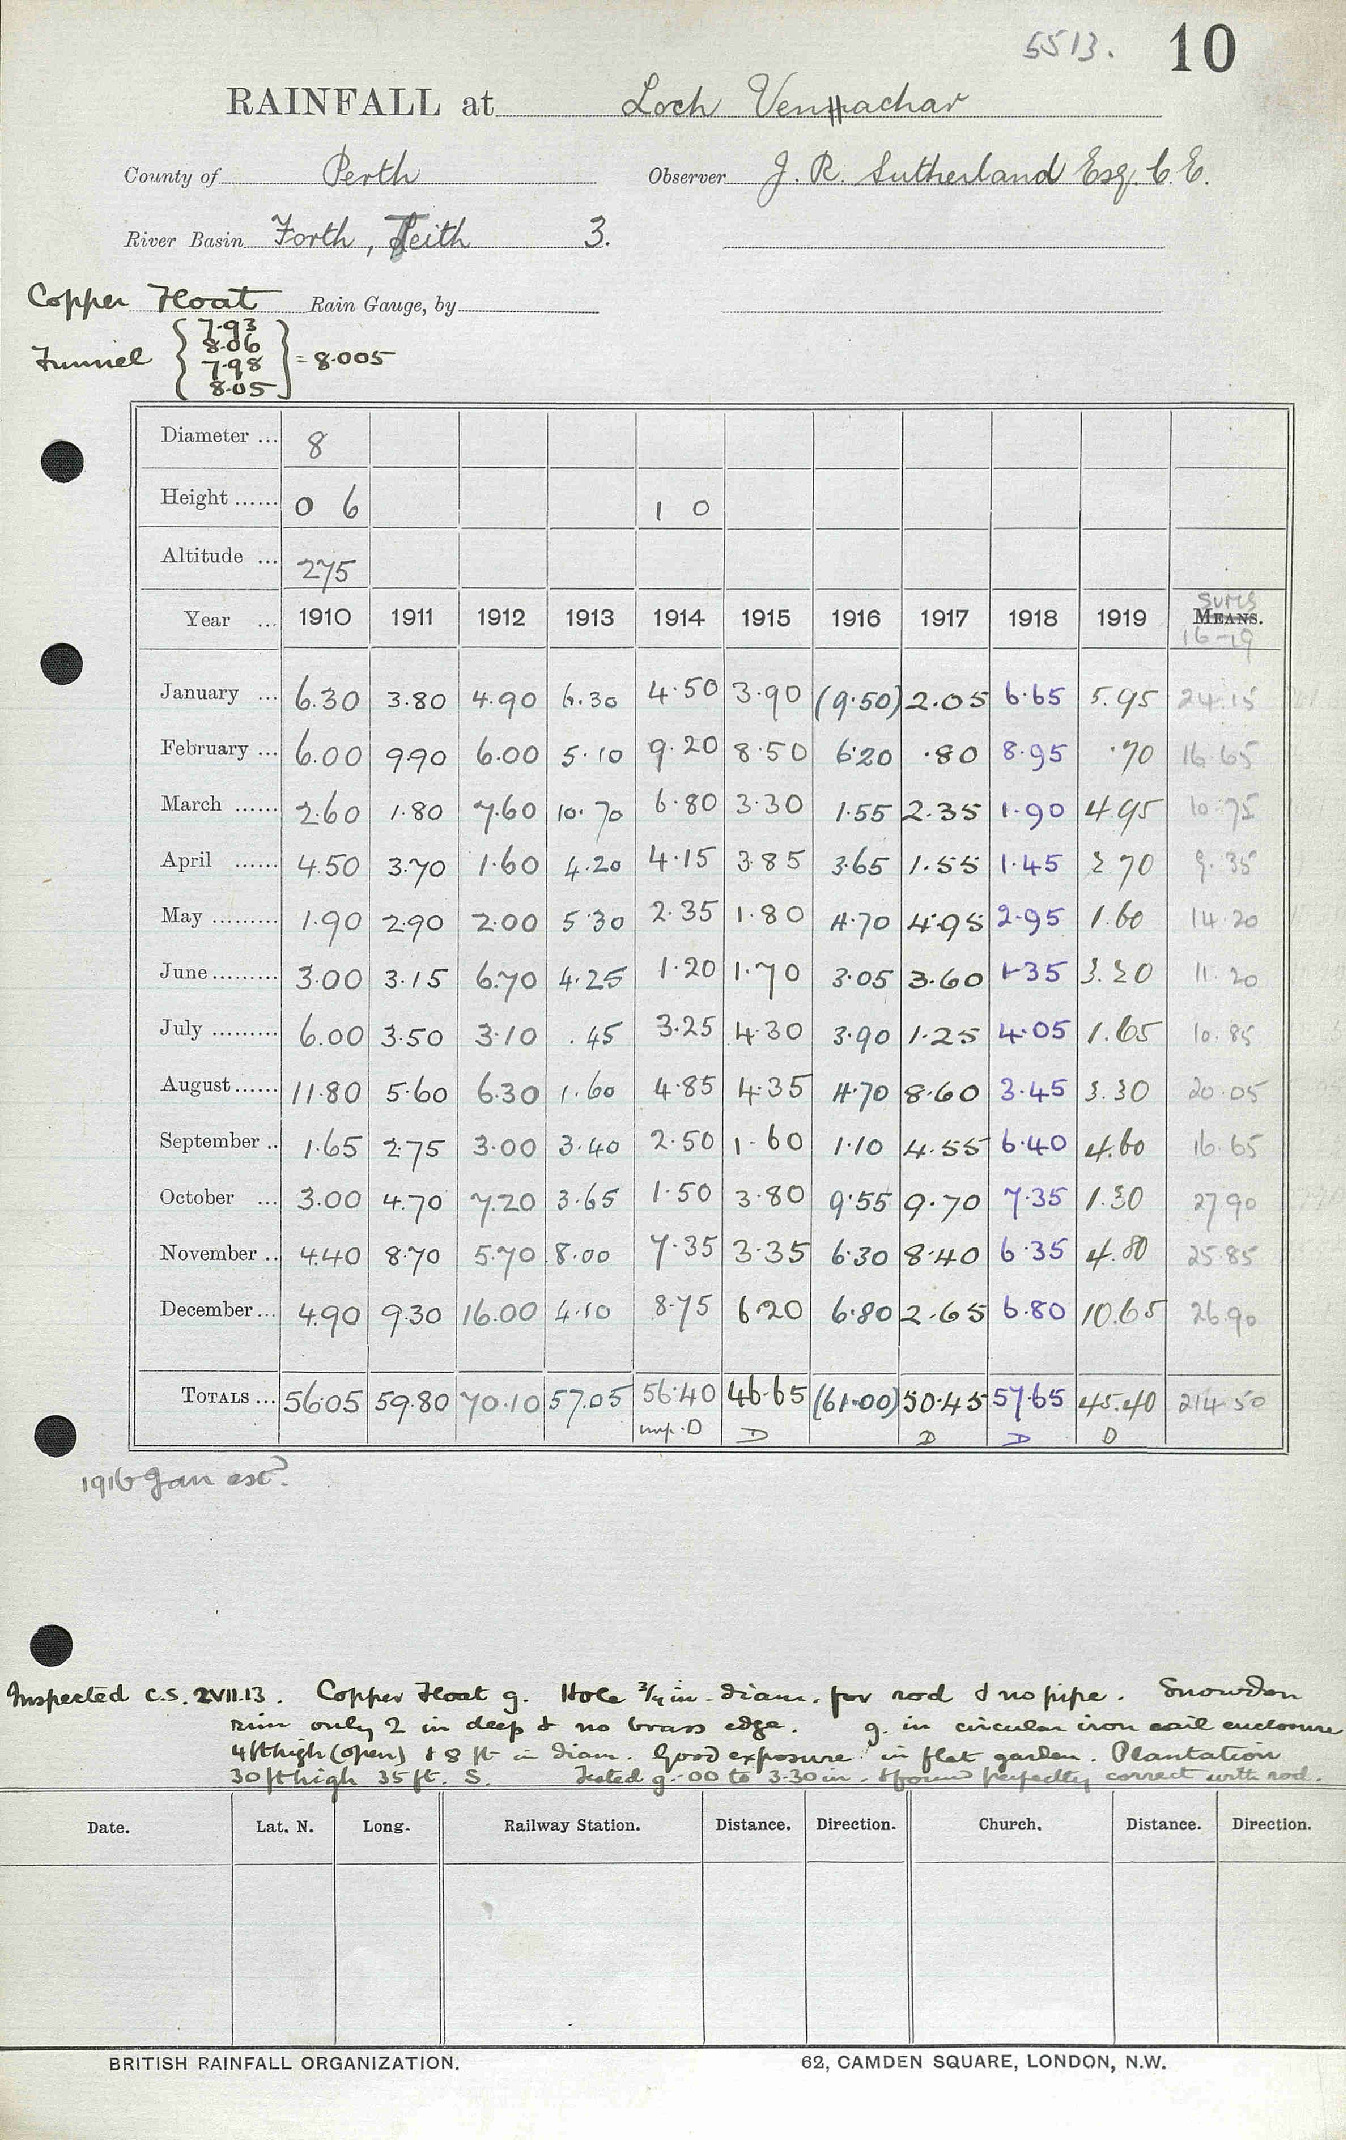 5513. 10
RAINFALL at Loch Vennachar
County of Perth Observer J. R. Sutherland Esq. C.E.
River Basin Forth, Teith 3.
Copper Float Rain Gauge, by
Funnel { 7.93 8.06 7.98 8.05 } = 8.005
Diameter ... 8
Height ...... 0 6 1 0
Altitude ... 275
Year ... 1910 1911 1912 1913 1914 1915 1916 1917 1918 1919 Sums MEANS. 16-19
January ... 6.30 3.80 4.90 6.30 4.50 3.90 (9.50) 2.05 6.65 5.95 24.15
February ... 6.00 9.90 6.00 5.10 9.20 8.50 6.20 .80 8.95 .70 16.65
March ...... 2.60 1.80 7.60 10.70 6.80 3.30 1.55 2.35 1.90 4.95 10.75
April ...... 4.50 3.70 1.60 4.20 4.15 3.85 3.65 1.55 1.45 2.70 9.35
May ......... 1.90 2.90 2.00 5.30 2.35 1.80 4.70 4.95 2.95 1.60 14.20
June......... 3.00 3.15 6.70 4.25 1.20 1.70 3.05 3.60 1.35 3.20 11.20
July ......... 6.00 3.50 3.10 .45 3.25 4.30 3.90 1.25 4.05 1.65 10.85
August...... 11.80 5.60 6.30 1.60 4.85 4.35 4.70 8.60 3.45 3.30 20.05
September .. 1.65 2.75 3.00 3.40 2.50 1.60 1.10 4.55 6.40 4.60 16.65
October ... 3.00 4.70 7.20 3.65 1.50 3.80 9.55 9.70 7.35 1.30 27.90
November .. 4.40 8.70 5.70 8.00 7.35 3.35 6.30 8.40 6.35 4.80 25.85
December... 4.90 9.30 16.00 4.10 8.75 6.20 6.80 2.65 6.80 10.65 26.90
TOTALS ... 56.05 59.80 70.10 57.05 56.40 46.65 (61.00) 50.45 57.65 45.40 214.50
imp. D D D D D
1916 Jan estd.
Inspected C.S. 2VII.13. Copper Float g. Hole 3/4 in. diam. for rod & no pipe. Snowdon
rim only 2 in deep & no brass edge. g. in circular iron rail enclosure
4 ft high (open) & 8 ft in diam. Good exposure in flat garden. Plantation
30 ft high 35 ft. S. Tested g. .00 to 3.30 in. & found perfectly correct with rod.
Date. Lat. N. Long. Railway Station. Distance. Direction. Church. Distance. Direction.
BRITISH RAINFALL ORGANIZATION. 62, CAMDEN SQUARE, LONDON, N.W.